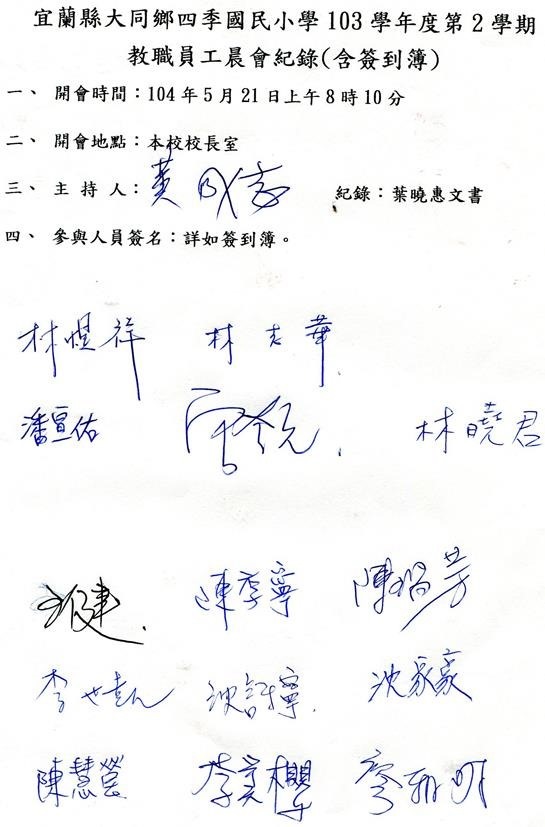 宜蘭縣大同鄉四季國民小學 103 學年度第 2 學期
教職員工晨會紀錄(含簽到簿)
一、 開會時間：104 年 5 月 21 日上午 8 時 10 分
二、 開會地點：本校校長室
三、 主 持 人： 紀錄：葉曉惠文書
四、 參與人員簽名：詳如簽到簿。
林煜祥 林志華
潘宣佑 林曉君
陳季寧
沈家豪
陳慧螢